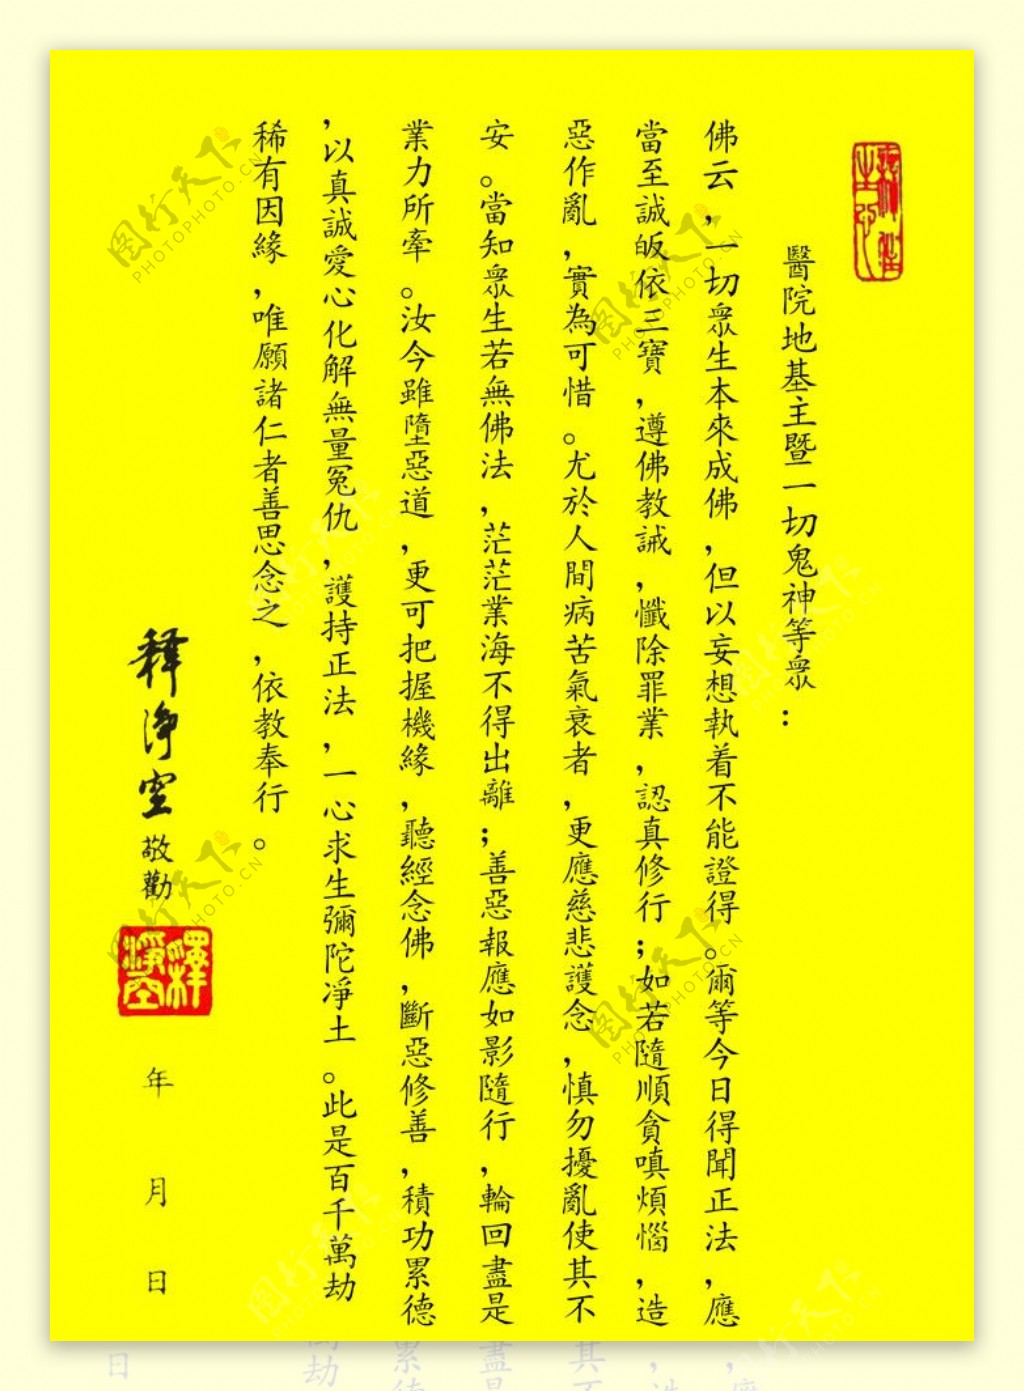 醫院地基主暨一切鬼神等眾：
佛云，一切眾生本來成佛，但以妄想執着不能證得。爾等今日得聞正法，應
當至誠皈依三寶，遵佛教誡，懺除罪業，認真修行；如若隨順貪嗔煩惱，造
惡作亂，實為可惜。尤於人間病苦氣衰者，更應慈悲護念，慎勿擾亂使其不
安。當知眾生若無佛法，茫茫業海不得出離；善惡報應如影隨行，輪回盡是
業力所牽。汝今雖墮惡道，更可把握機緣，聽經念佛，斷惡修善，積功累德
，以真誠愛心化解無量冤仇，護持正法，一心求生彌陀凈土。此是百千萬劫
稀有因緣，唯願諸仁者善思念之，依教奉行。
釋淨空敬勸
釋淨空
年 月 日
图行天下
PHOTOPHOTO.CN
图行天下
PHOTOPHOTO.CN
图行天下
PHOTOPHOTO.CN
图行天下
PHOTOPHOTO.CN
图行天下
PHOTOPHOTO.CN
图行天下
PHOTOPHOTO.CN
图行天下
PHOTOPHOTO.CN
图行天下
PHOTOPHOTO.CN